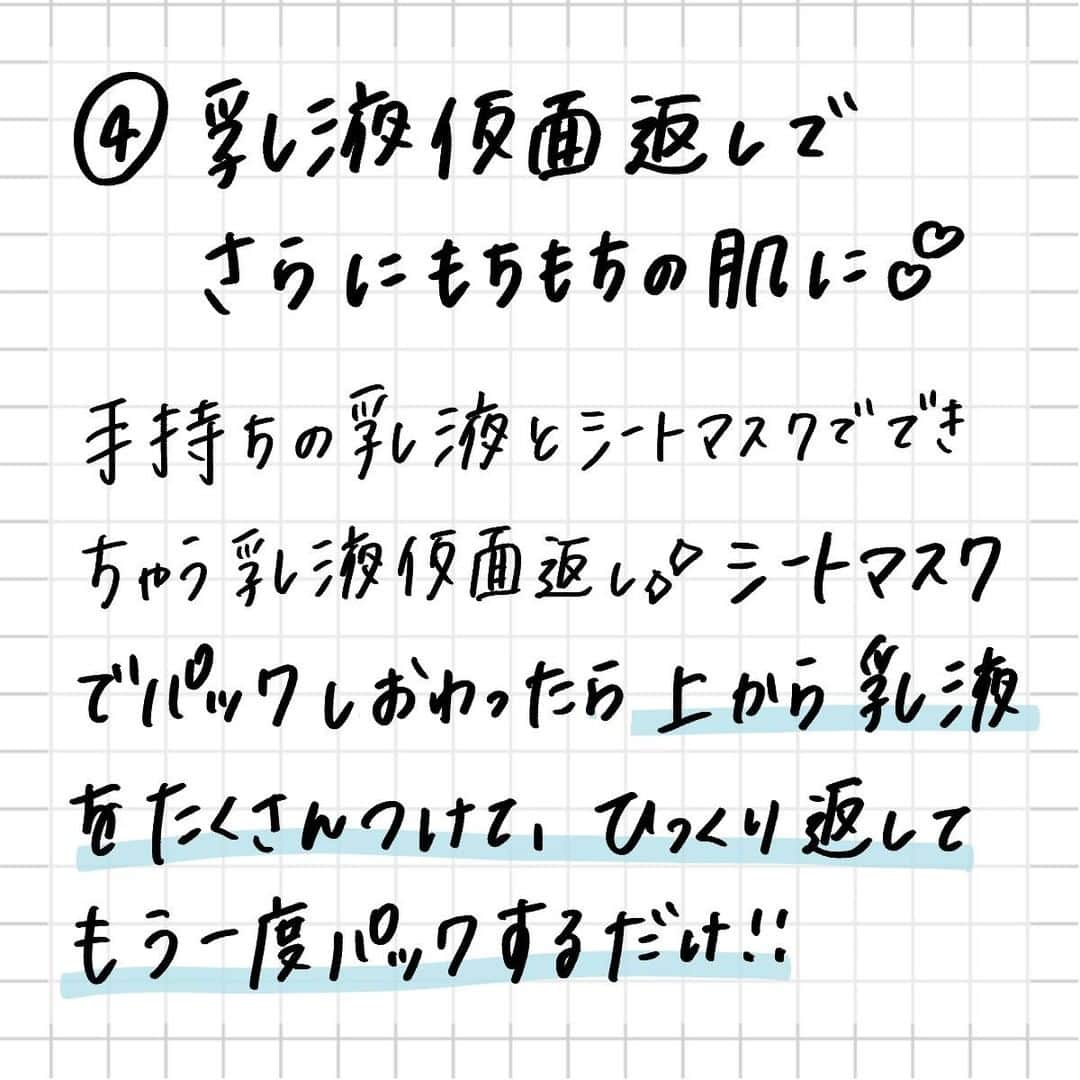 ④ 乳液仮面返しで
さらにもちもちの肌に♡♡
手持ちの乳液とシートマスクででき
ちゃう乳液仮面返し シートマスク
でパックしおわったら上から乳液
をたくさんつけて、ひっくり返して
もう一度パックするだけ!!